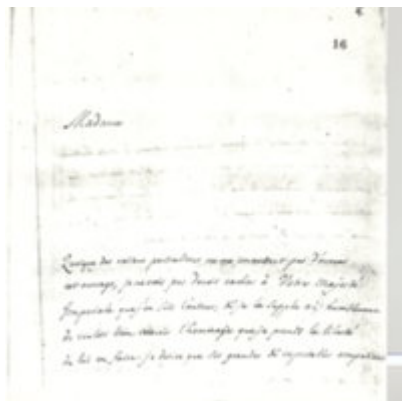 16
Madame
Quoique des raisons particulières ne me permettent pas d'avouer
cet ouvrage, je ne crois pas devoir cacher à Votre Majesté
Impériale que j'en suis l'auteur, et je la supplie très humblement
de vouloir bien l'hommage que je prends la liberté
de lui en faire. je désire que les grandes et respectables occupations